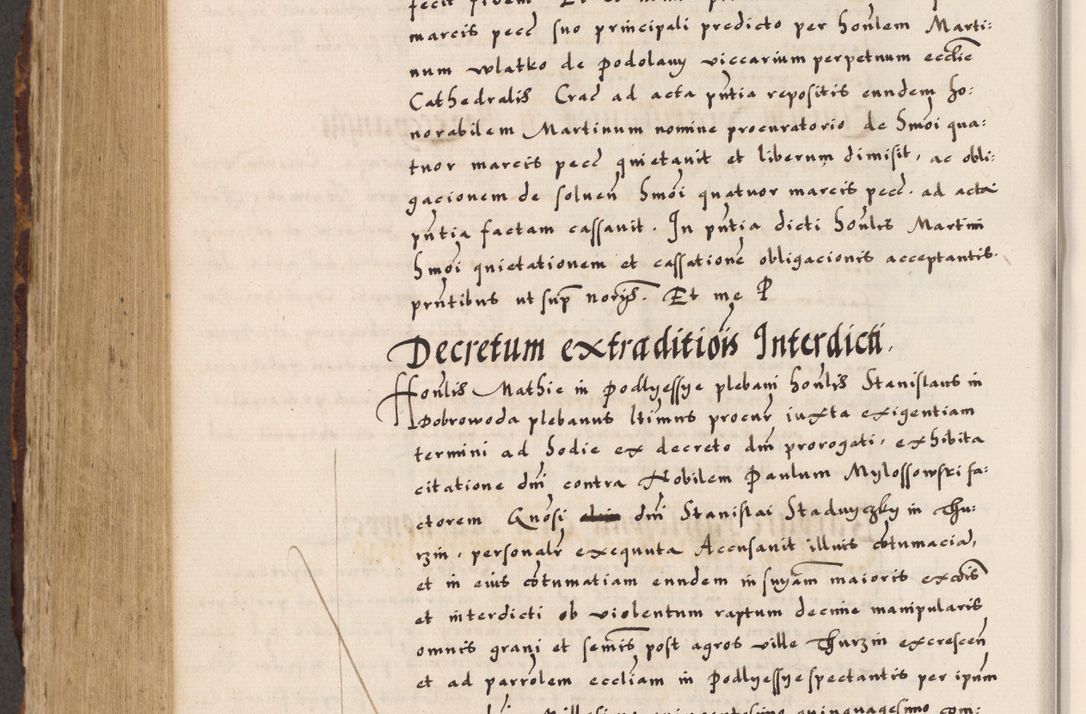 marcis pecc suo principali predicto per honlem Marti:
num wlatko de Podolany viccarium perpetuum ecclie
Cathedralis Crac ad acta pntia repositis eundem ho:
norabilem Martinum nomine procuratorio de hmoi qua:
tuor marcis pecc quietauit et liberum dimisit, ac obli:
gacionem de soluen hmoi quatuor marcis pecc. ad acta
pntia factam cassauit. In pntia dicti honlis Martini
hmoi quietationem et cassatione obligacionis acceptantis.
pntibus ut sup norijs. Et me P
Decretum extraditiois Interdicti.
Honlis Mathie in Podlyessye plebani honlis Stanislaus in
Dobrowoda plebanus ltimus procur iuxta exigentiam
termini ad hodie ex decreto dni prorogati, exhibita
citatione dni contra Nobilem Paulum Mylossowski fa:
ctorem Gnosi dni Stanislai Staduyczky in Thu:
rzin, personalr exequuta Accusauit illius cotumacia,
et in eius cotumatiam eundem in suyam maioris excois
et interdicti ob violentum raptum decime manipularis
omnis grani et semis post agros ville Thurzin excrescen
et ad parrolem eccliam in Podlyessye spectantis per ipum